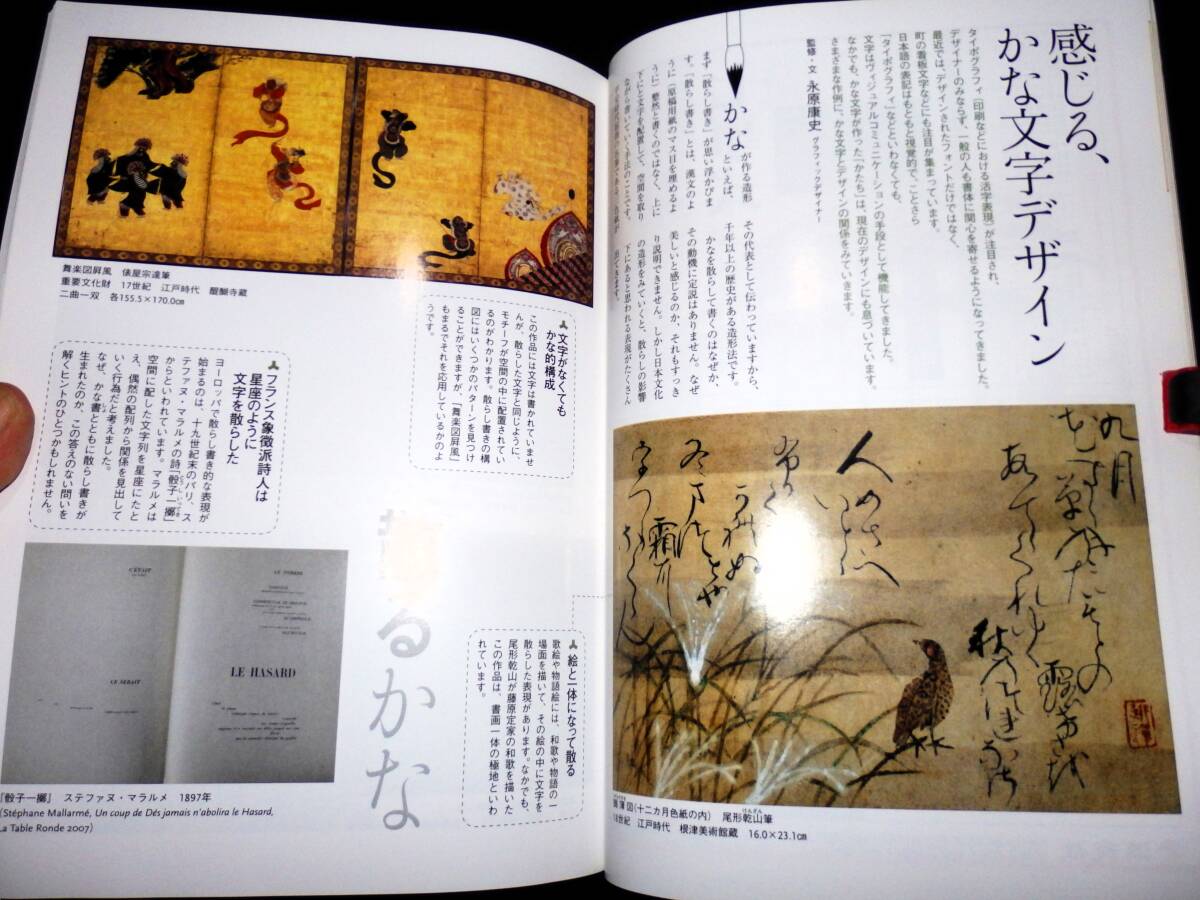 感じる、
かな文字デザイン
タイポグラフィ(印刷などにおける活字表現)が注目され、
デザイナーのみならず、一般の人も書体に関心を寄せるようになってきました。
最近では、デザインされたフォントだけではなく、
町の看板文字などにも注目が集まっています。
日本語の表記はもともと視覚的で、ことさら
「タイポグラフィ」などといわなくても、
文字はヴィジュアルコミュニケーションの手段として機能してきました。
なかでも、かな文字が作った「かたち」は、現在のデザインにも息づいています。
さまざまな作例に、かな文字とデザインの関係をみていきます。
監修・文 永原康史 グラフィックデザイナー
かな
が作る造形
といえば、
まず「散らし書き」が思い浮かびま
す。「散らし書き」とは、漢文のよ
うに(原稿用紙のマス目を埋めるよ
うに)整然と書くのではなく、上に
下にと文字を配置して、空間を取り
ながら書いていく手法のことです。
その代表として伝わっていますから、
千年以上の歴史がある造形法です。
かなを散らして書くのはなぜか、
その動機に定説はありません。なぜ
美しいと感じるのか、それもすっき
り説明できません。しかし日本文化
の造形をみていくと、散らしの影響
下にあると思われる表現がたくさん
出てきます。
九月
人めさへ
霜
秋
薄図(十二カ月色紙の内) 尾形乾山筆
けんざん
18世紀 江戸時代 根津美術館蔵 16.0×23.1㎝
舞楽図屏風 俵屋宗達筆
重要文化財 17世紀 江戸時代 醍醐寺蔵
二曲一双 各155.5×170.0㎝
文字がなくても
かな的構成
この作品には文字は書かれていませ
んが、散らした文字と同じように、
モチーフが空間の中に配置されてい
るのがわかります。散らし書きの構
図にはいくつかのパターンを見つけ
ることができますが、「舞楽図屏風」
もまるでそれを応用しているかのよ
うです。
フランス象徴派詩人は
星座のように
文字を散らした
ヨーロッパで散らし書き的な表現が
始まるのは、十九世紀末のパリ、ス
テファヌ・マラルメの詩「骰子一擲」
からといわれています。マラルメは
空間に配した文字列を星座にたと
え、偶然の配列から関係を見出して
いく行為だと考えました。
なぜ、かな書とともに散らし書きが
生まれたのか、この答えのない問いを
解くヒントのひとつかもしれません。
絵と一体になって散る
歌絵や物語絵には、和歌や物語の一
場面を描いて、その絵の中に文字を
散らした表現があります。なかでも、
尾形乾山が藤原定家の和歌を描いた
この作品は、書画一体の極地といわ
れています。
るかな
C'ÉTAIT
CE SERAIT
LE NOMBRE
LE HASARD
『骰子一擲』 ステファヌ・マラルメ 1897年
(Stéphane Mallarmé, Un coup de Dés jamais n'abolira le Hasard,
La Table Ronde 2007)